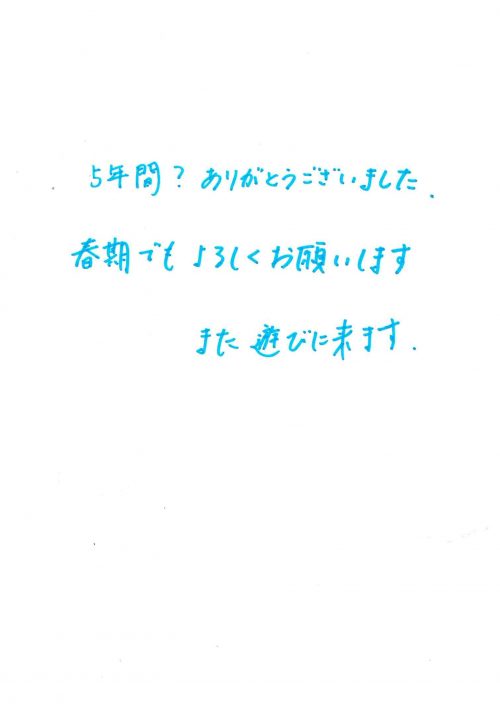 5年間？ありがとうございました.
春期でもよろしくお願いします
また遊びに来ます.